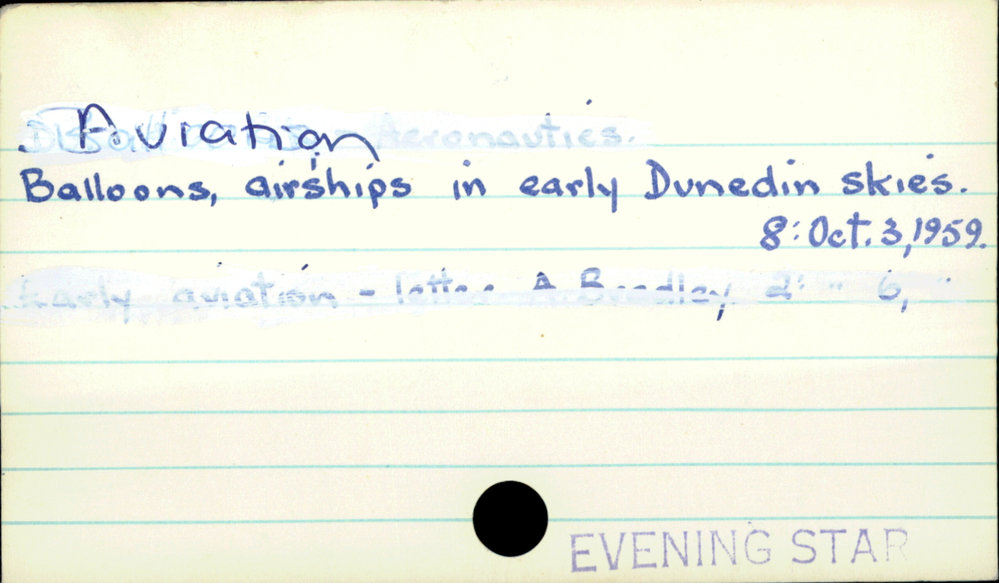 Aviation Aeronautics.
Balloons, airships in early Dunedin skies.
8: Oct. 3, 1959.
Early aviation - letter A Bradley 2: " 6, "
EVENING STAR